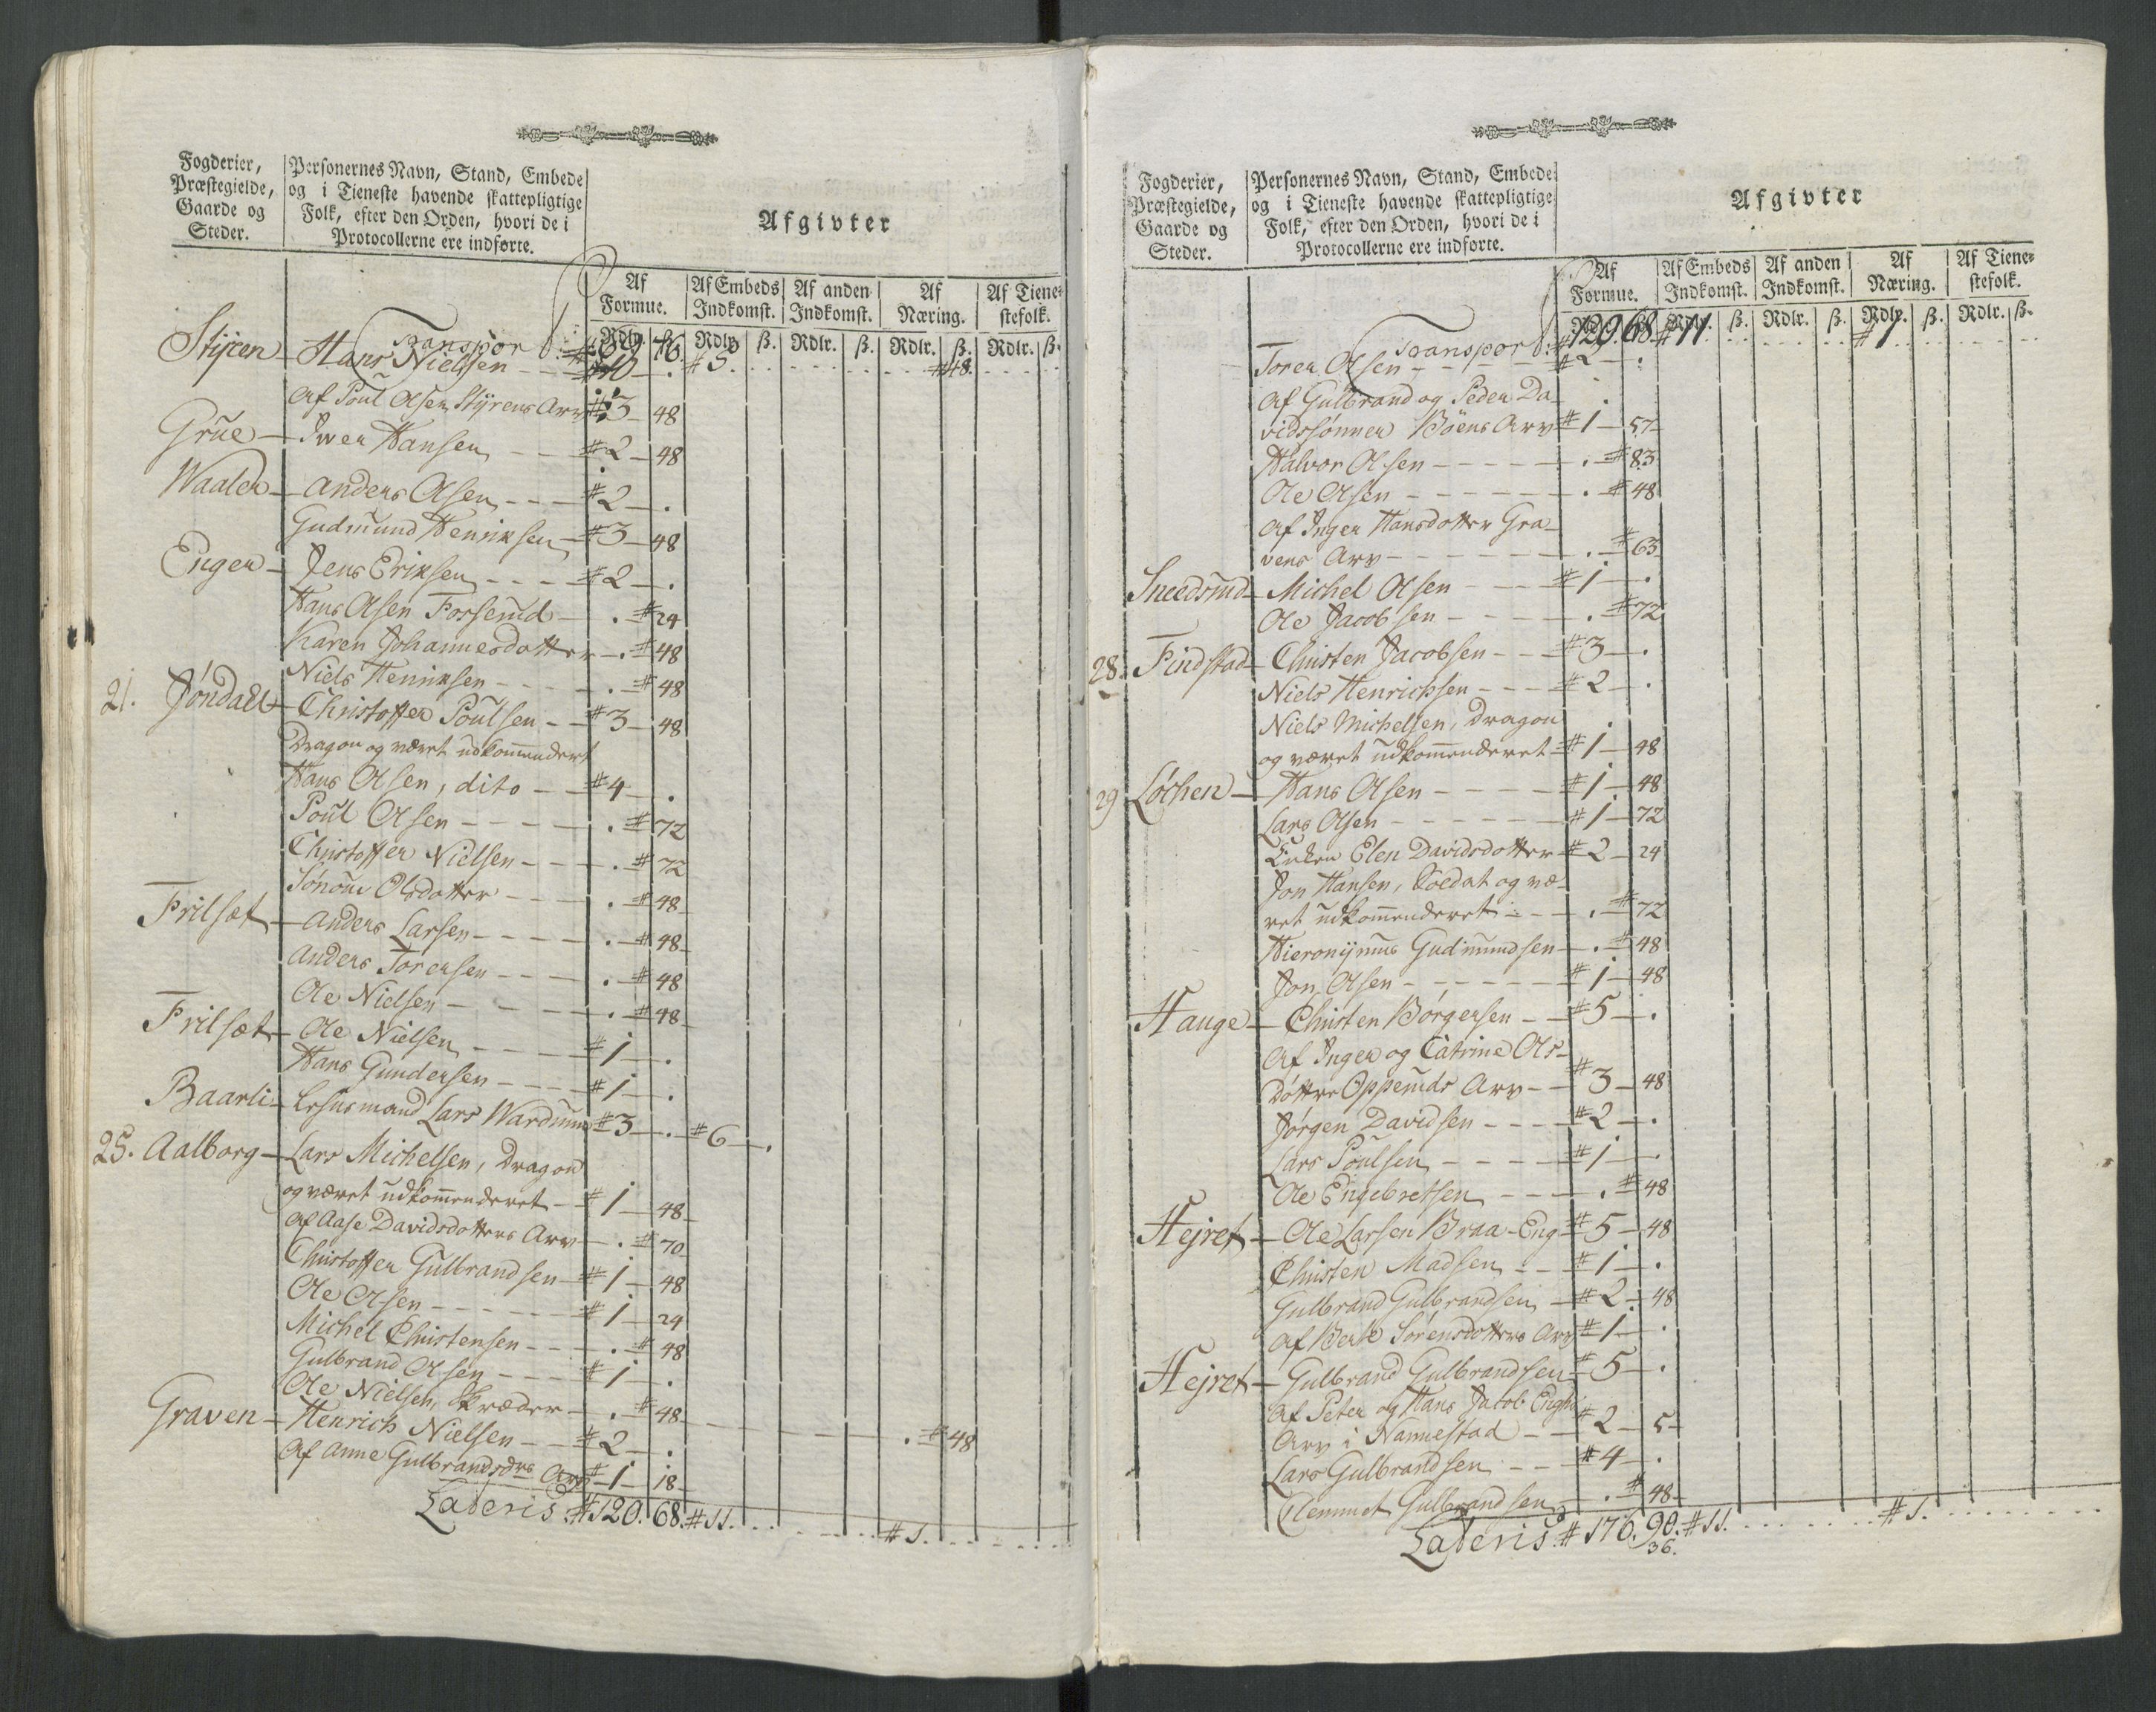 Fogderier,
Præstegielde,
Gaarde og
Steder.
Personernes Navn, Stand, Embede
og i Tieneste havende skattepligtige
Folk, efter den Orden, hvori de i
Protocollerne ere indførte.
Afgivter
Af Formue. Af Embeds Indkomst. Af anden Indkomst. Af Næring. Af Tienestefolk.
Rdlr. ß. Rdlr. ß. Rdlr. ß. Rdlr. ß. Rdlr. ß.
Transport # 69 76 # 5 # 48
Styren Hans Nielsen # 10 .
Af Poul Olsen Styrens Arv # 3 48
Grue Iver Hansen # 2 48
Waaler Anders Olsen # 2 .
Gudmund Henriksen # 3 48
Enger Jens Eriksen # 2 .
Hans Olsen Fosserud . # 24
Karen Johannesdotter . # 48
Niels Henriksen . # 48
21. Jøndahl Christoffer Poulsen # 3 48
Dragon og været udkommendert
Hans Olsen, dito # 4 .
Poul Olsen . # 72
Christoffer Nielsen . # 72
Olsdotter . # 48
Frilset Anders Larsen . # 48
Anders Torersen . # 48
Ole Nielsen . # 48
Frilset Ole Nielsen # 1 .
Hans Gundersen # 1 .
Baarli Lehnsmand Lars Wardum # 3 . # 6 .
25. Aalborg Lars Michelsen, Dragon
og været udkommenderet # 1 48
Af Aase Davidsdotters Arv . # 70
Christoffer Gulbrandsen # 1 48
Ole Olsen # 1 24
Michel Christensen . # 48
Gulbrand Olsen # 1 .
Ole Nielsen, Skræder . # 48
Graven Henrich Nielsen # 2 . . # 48
Af Anne Gulbrandsdrs Arv # 1 18
Lateris # 120. 68. # 11. # 1.
Fogderier,
Præstegielde,
Gaarde og
Steder.
Personernes Navn, Stand, Embede
og i Tieneste havende skattepligtige
Folk, efter den Orden, hvori de i
Protocollerne ere indførte.
Afgivter
Af Formue. Af Embeds Indkomst. Af anden Indkomst. Af Næring. Af Tienestefolk.
Rdlr. ß. Rdlr. ß. Rdlr. ß. Rdlr. ß.
Transport # 120. 68. # 11 # 1
Torer Olsen # 2 .
Af Gulbrand og Peder Da-
vidssønner Böens Arv # 1 57
Halvor Olsen . # 83
Ole Olsen . # 48
Af Inger Hansdotter Gra-
vens Arv . # 63
Sneedsrud Michel Olsen # 1 .
Ole Jacobsen . # 72
28. Findstad Christen Jacobsen # 3 .
Niels Henrichsen # 2 .
Niels Michelsen, Dragon
og været udkommenderet # 1 48
29 Løchen Hans Olsen # 1 48
Lars Olsen # 1 72
Enken Elen Davidsdotter # 2 24
Jon Hansen, Soldat og væ-
ret udkommenderet . # 72
Hieronymus Gudmundsen . # 48
Jon Olsen # 1 48
Hauge Christen Börgersen # 5 .
Af Inger og Catrine Ols-
døttre Opperuds Arv # 3 48
Jørgen Davidsen # 2 .
Lars Poulsen # 1 .
Ole Engebretsen . # 48
Hejret Ole Larsen Braa-Eng # 5 48
Christen Madsen # 1 .
Gulbrand Gulbrandsen # 2 48
Af Berte Sørensdotters Arv # 1 .
Hejret Gulbrand Gulbrandsen # 5 .
Af Peter og Hans Jacob Enghs
Arv i Nannestad # 2 5
Lars Gulbrandsen # 4 .
Clemmet Gulbrandsen . # 48
Lateris # 176. 90. # 11. # 1.
36.